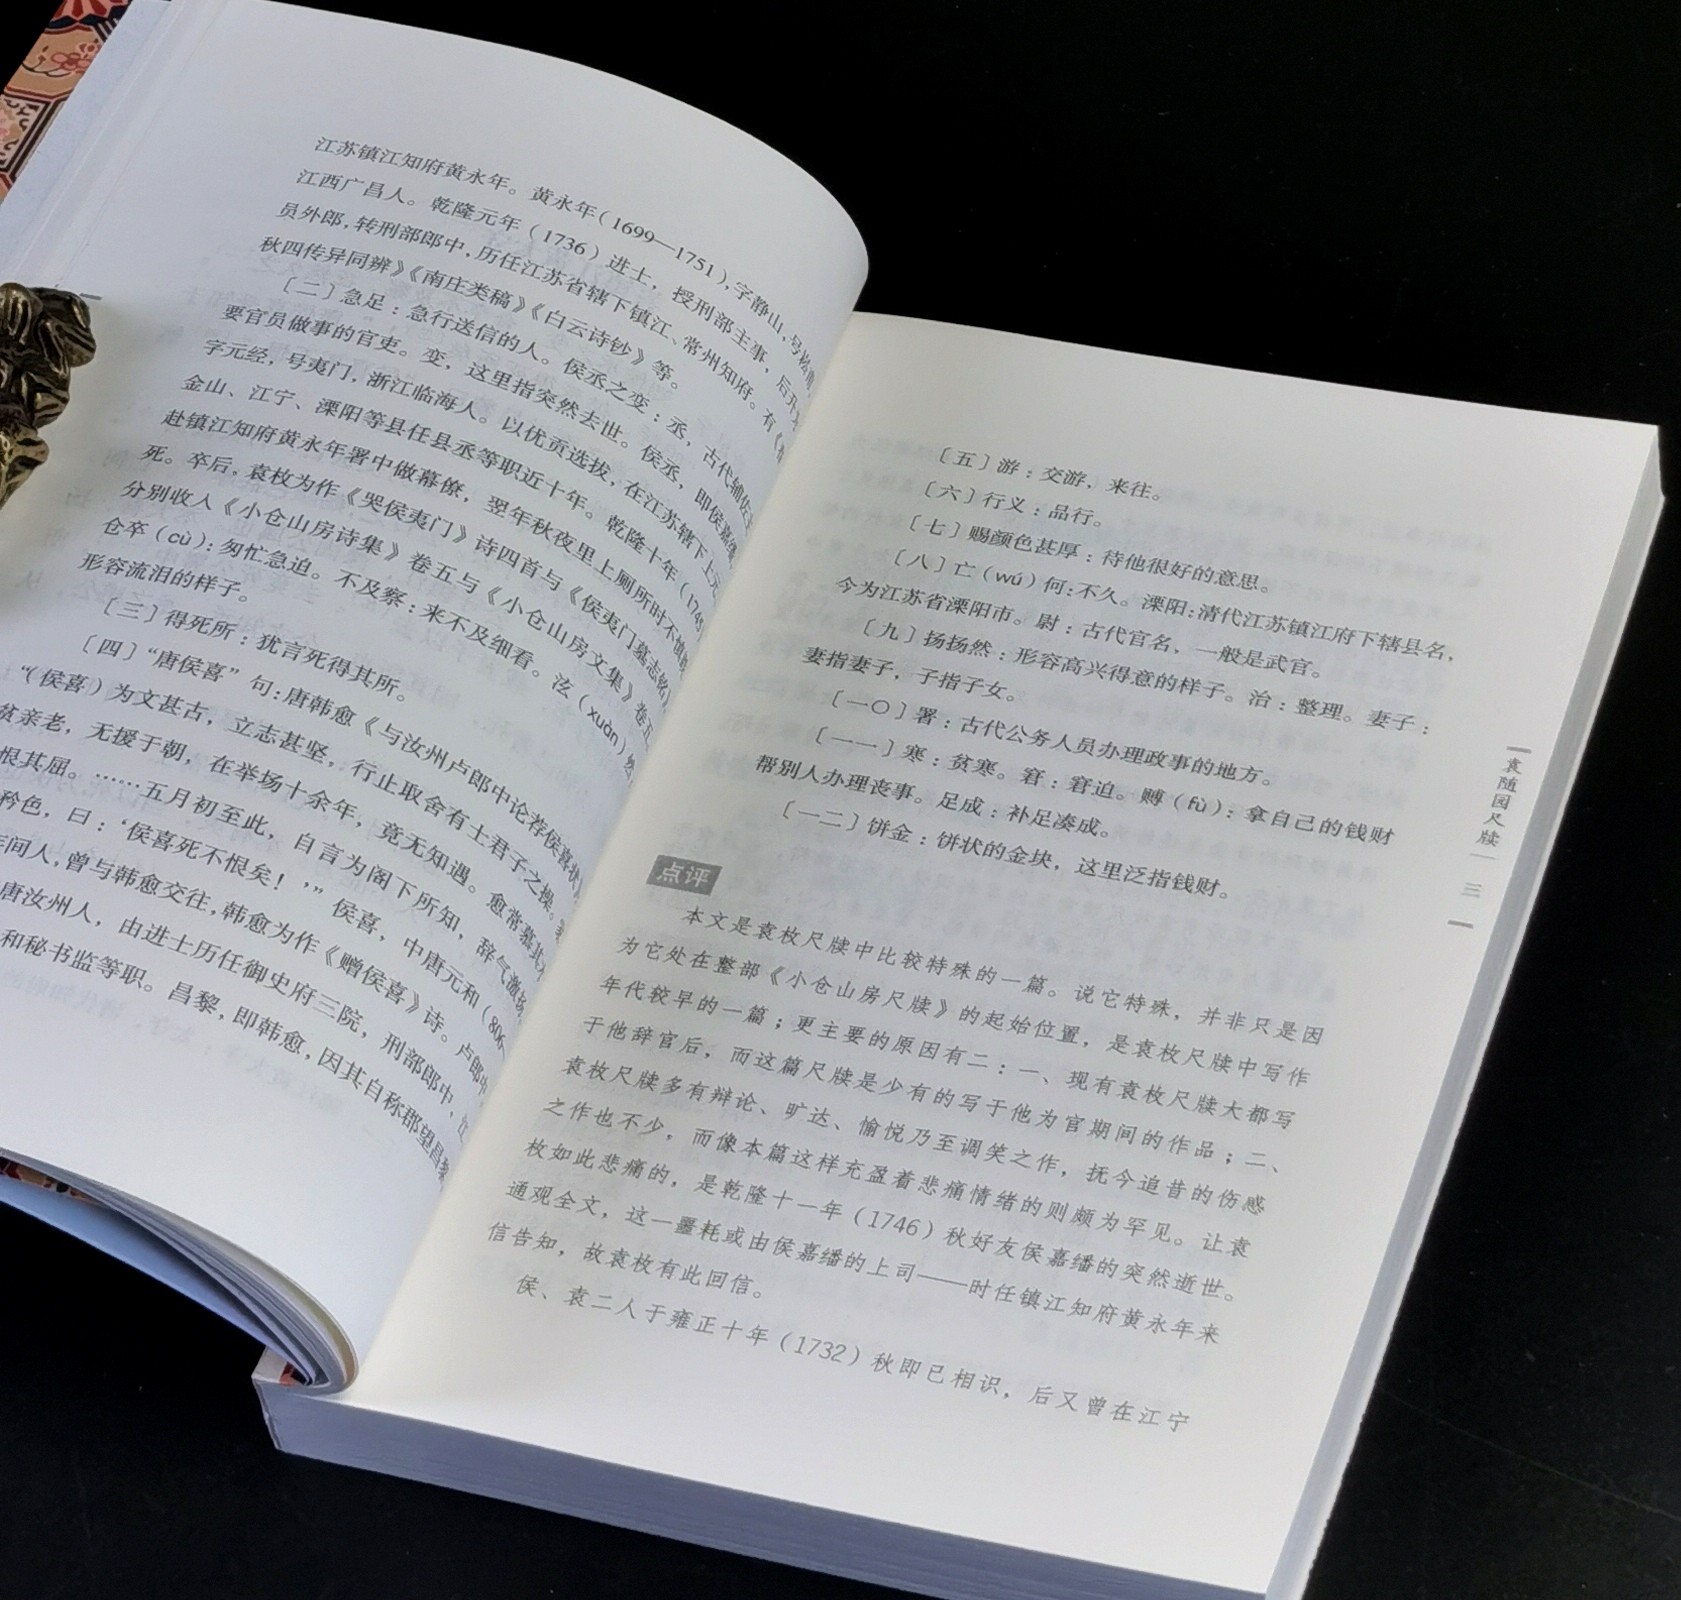 江苏镇江知府黄永年。黄永年（1699—1751），字静山，号崧甫，
江西广昌人。乾隆元年（1736）进士，授刑部主事，后升
员外郎，转刑部郎中，历任江苏省辖下镇江、常州知府。有《
秋四传异同辨》《南庄类稿》《白云诗钞》等。
〔二〕急足：急行送信的人。侯丞之变：丞，古代辅佐
要官员做事的官吏。变，这里指突然去世。侯丞，即侯嘉繙，
字元经，号夷门，浙江临海人。以优贡选拔，在江苏辖下上元、
金山、江宁、溧阳等县任县丞等职近十年。乾隆十年（1745
赴镇江知府黄永年署中做幕僚，翌年秋夜里上厕所时不慎跌
死。卒后，袁枚为作《哭侯夷门》诗四首与《侯夷门墓志铭》，
分别收入《小仓山房诗集》卷五与《小仓山房文集》卷五
仓卒（cù）：匆忙急迫。不及察：来不及细看。泫（xuàn）然：
形容流泪的样子。
〔三〕得死所：犹言死得其所。
〔四〕“唐侯喜”句：唐韩愈《与汝州卢郎中论荐侯喜状》
“（侯喜）为文甚古，立志甚坚，行止取舍有士君子之操。家
贫亲老，无援于朝，在举场十余年，竟无知遇。愈常慕其才
恨其屈。……五月初至此，自言为阁下所知，辞气激扬
矜色，曰：‘侯喜死不恨矣！’”侯喜，中唐元和（806
年间人，曾与韩愈交往，韩愈为作《赠侯喜》诗。卢郎中
唐汝州人，由进士历任御史府三院，刑部郎中，江
和秘书监等职。昌黎，即韩愈，因其自称郡望昌黎
〔五〕游：交游，来往。
〔六〕行义：品行。
〔七〕赐颜色甚厚：待他很好的意思。
〔八〕亡（wú）何：不久。溧阳：清代江苏镇江府下辖县名，
今为江苏省溧阳市。尉：古代官名，一般是武官。
〔九〕扬扬然：形容高兴得意的样子。治：整理。妻子：
妻指妻子，子指子女。
〔一〇〕署：古代公务人员办理政事的地方。
〔一一〕寒：贫寒。窘：窘迫。赙（fù）：拿自己的钱财
帮别人办理丧事。足成：补足凑成。
〔一二〕饼金：饼状的金块，这里泛指钱财。
点评
本文是袁枚尺牍中比较特殊的一篇。说它特殊，并非只是因
为它处在整部《小仓山房尺牍》的起始位置，是袁枚尺牍中写作
年代较早的一篇；更主要的原因有二：一、现有袁枚尺牍大都写
于他辞官后，而这篇尺牍是少有的写于他为官期间的作品；二、
袁枚尺牍多有辩论、旷达、愉悦乃至调笑之作，抚今追昔的伤感
之作也不少，而像本篇这样充盈着悲痛情绪的则颇为罕见。让袁
枚如此悲痛的，是乾隆十一年（1746）秋好友侯嘉繙的突然逝世。
通观全文，这一噩耗或由侯嘉繙的上司——时任镇江知府黄永年来
信告知，故袁枚有此回信。
侯、袁二人于雍正十年（1732）秋即已相识，后又曾在江宁
袁随园尺牍
三